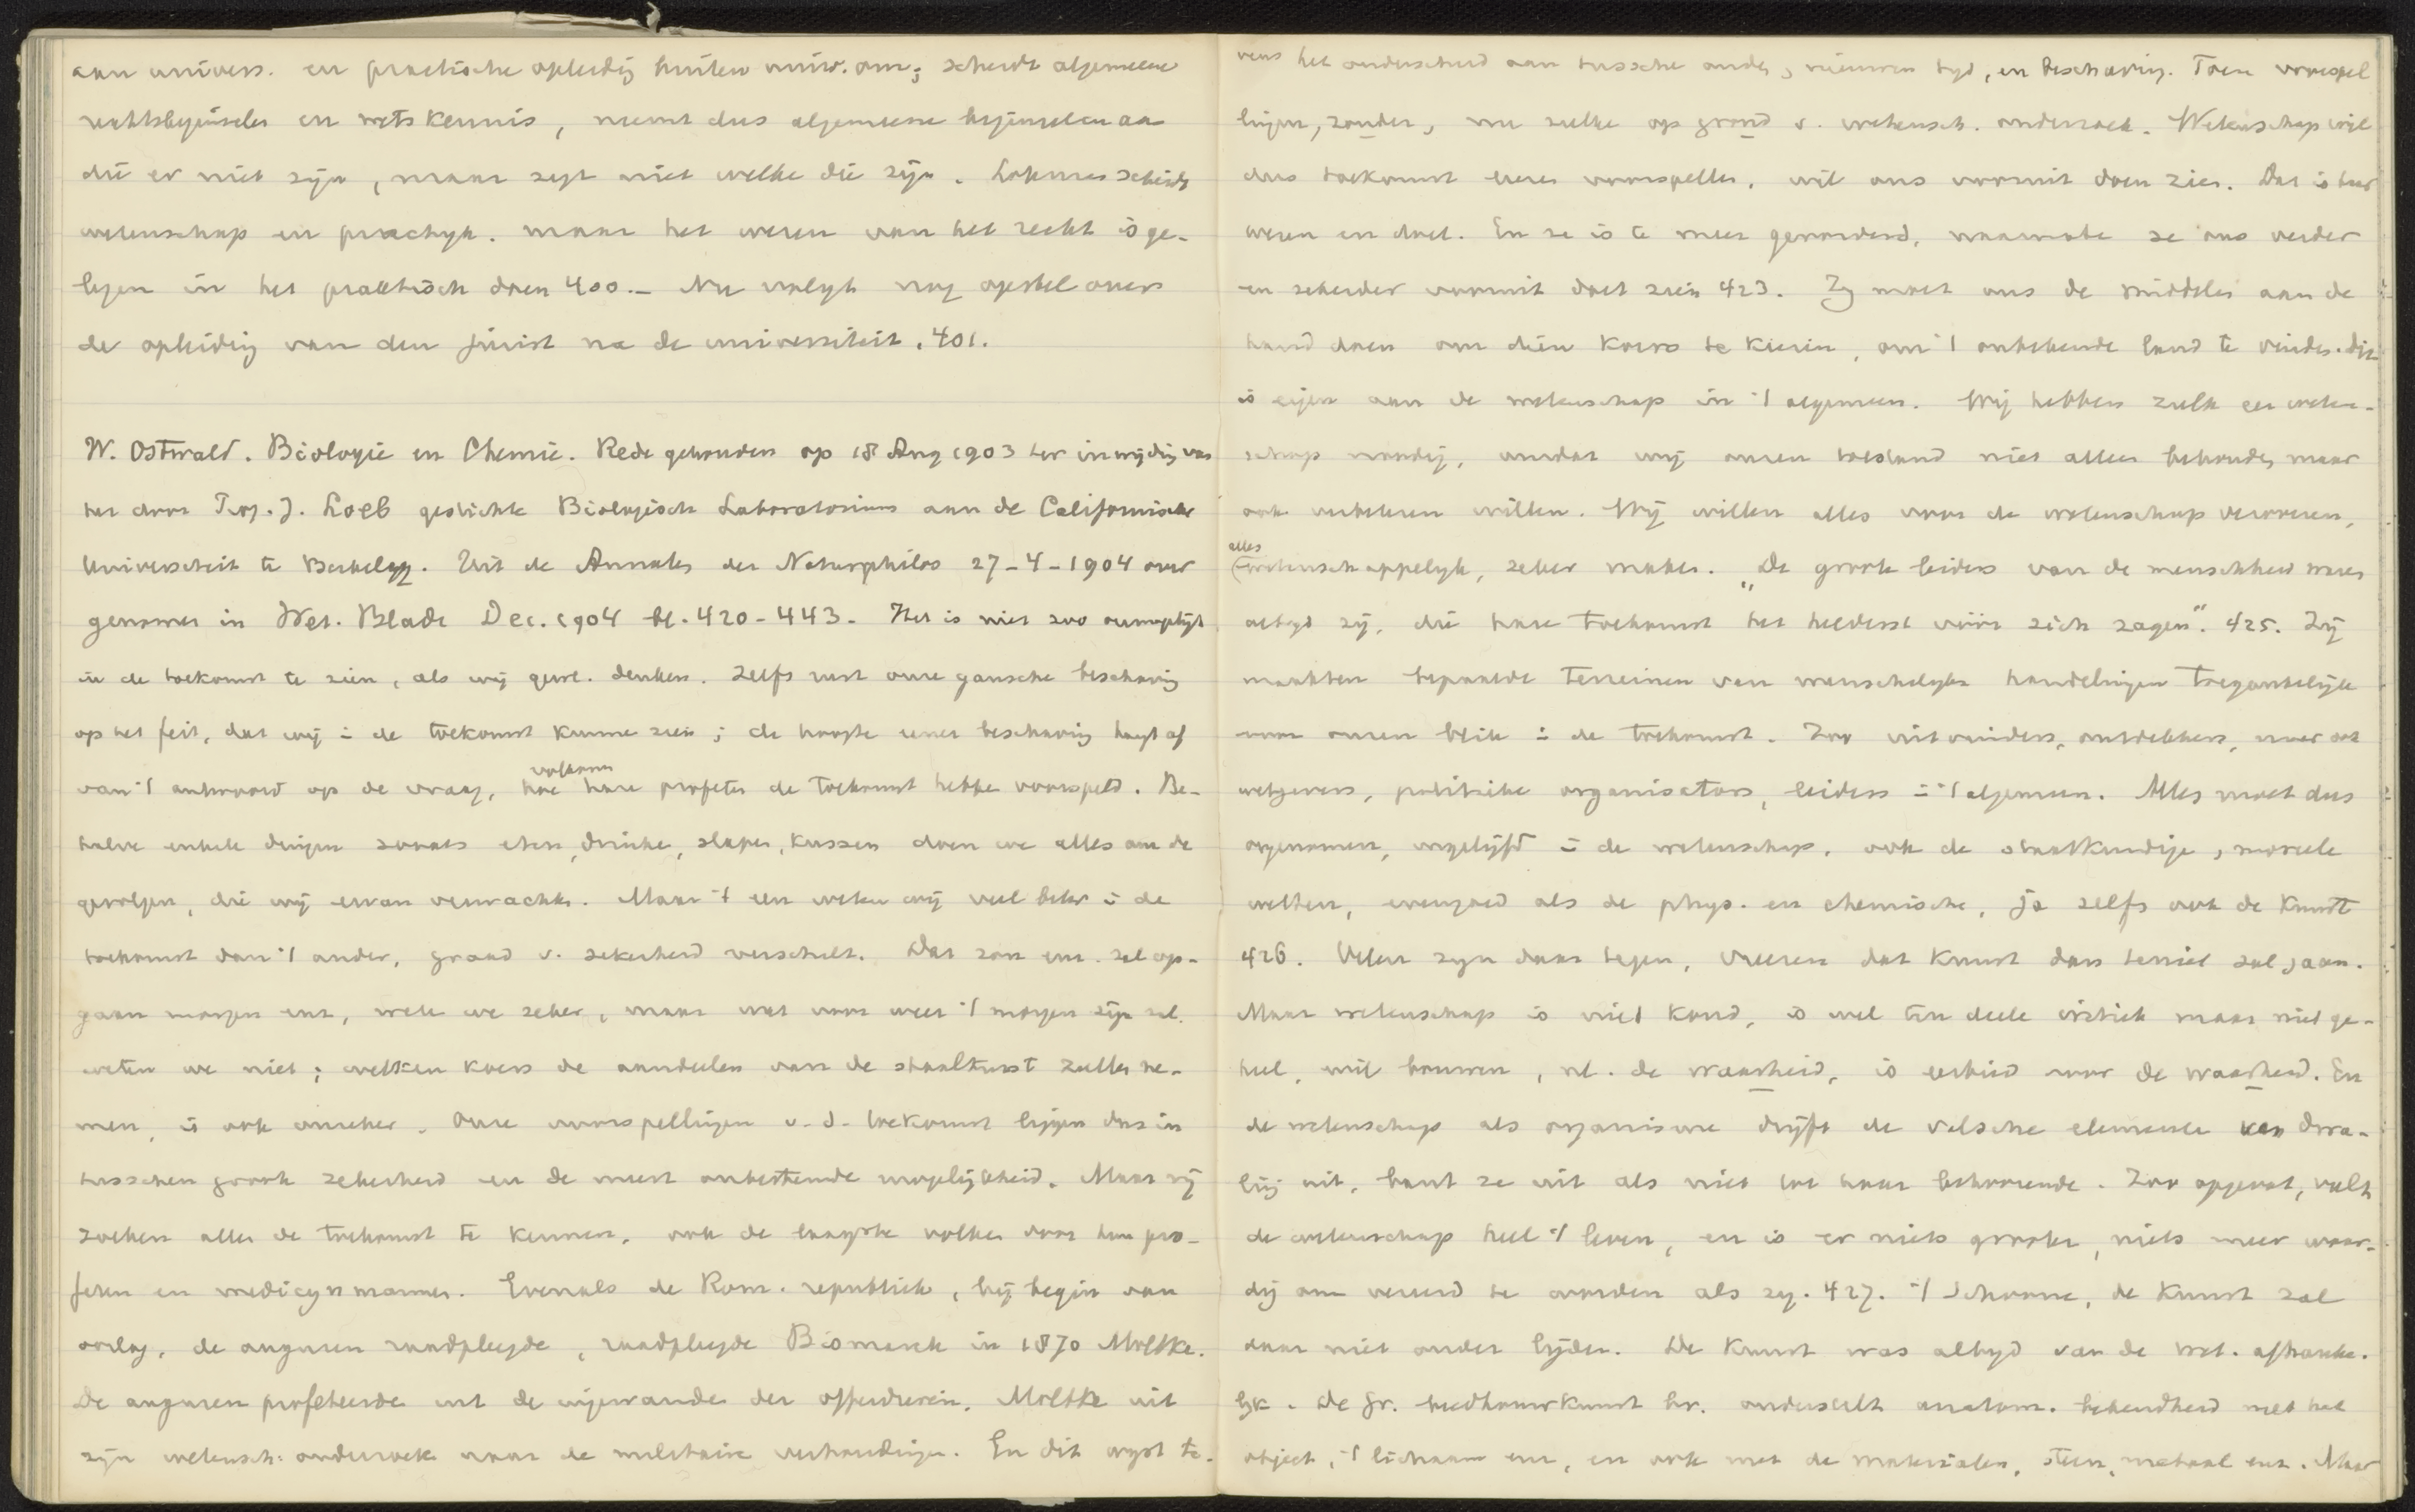 aan univers. en practische opleidig buiten univ. om; scheidt algemeene
rechtsbeginselen en wetskennis, neemt dus algemeene beginselen aan
die er niet zijn, maar zegt niet welke die zijn. scheidt
wetenschap en practyk. maar het wezen van het recht is ge-
legen in het praktisch doen 400.— Nu volgt nog opstel over
de opleidig van den jurist na de universiteit. 401.
W. Ostwald. Biologie en Chemie. Rede gehouden op 18 Aug 1903 ter inwijdig van
het door Prof. J. Loeb gestichte Biologisch Laboratorium aan de Californische
Universiteit te Berkeley. Uit de Annalen der Naturphilos 27-4-1904 over
genomen in Wet. Blade Dec. 1904 bl. 420-443. Het is niet zoo onmogelijk
in de toekomst te zien, als wij gew. denken. Zelfs rust onze gansche beschavig
op het feit, dat wij i de toekomst kunne zien; de hoogte eener beschavig hangt af
van 't antwoord op de vraag, hoe volkomen hare profeten de toekomst hebbe voorspeld. Be-
halve enkele dingen zooals eten, drinke, slapen, kussen doen we alles om de
gevolgen, die wij ervan verwachte. Maar 't een weten wij veel beter i de
toekomst dan 't ander, graad v. zekerheid verschilt. Dat zon enz. zal op-
gaan morgen enz, wete we zeker, maar wat voor weer 't morgen zijn zal
weten we niet; welken koers de aandeelen van de staaltrust zulle ne-
men, is ook onzeker. Onze voorspellingen v. d. toekomst liggen dus in
tusschen groote zekerheid en de meest onbestemde mogelijkheid. Maar wij
zoeken allen de toekomst te kennen, ook de laagste volken door hun pro-
feten en medicynmannen. Evenals de Rom. republiek, bij begin van
oorlog, de auguren raadpleegde, raadpleegde Bismarck in 1870 Moltke.
De auguren profeteerde uit de ingewande der offerdieren, Moltke uit
zijn wetensch. onderzoek naar de militaire verhoudingen. En dit wyst te-
vens het onderscheid aan tussche oude, nieuwen tyd, en beschavig. Toen voorspel
lingen, zonder, nu zulke op grond v. wetensch. onderzoek. Wetenschap wil
dus toekomst leeren voorspellen, wil ons vooruit doen zien. Dat is haar
wezen en doel. En ze is te meer gevorderd, naarmate ze ons verder
en zekerder vooruit doet zien 423. Zy moet ons de middelen aan de
hand doen om dien koers te kiezen, om 't onbekende land te vinden. Dit
is eigen aan de wetenschap in 't algemeen. Wij hebben zulk een weten-
schap noodig, omdat wij onzen toestand niet alleen behouden, maar
ook verbeteren willen. Wij willen alles voor de wetenschap veroveren,
alles wetenschappelyk, zeker maken. „De groote leiders van de menschheid waren
altijd zij, die hare toekomst het helderst vóór zich zagen”. 425. Zij
maakten bepaalde terreinen van menschelyke handelingen toegankelijk
voor onzen blik i de toekomst. Zoo uitvinders, ontdekkers, maar ook
wetgevers, politieke organisators, leiders i 't algemeen. Alles moet dus
opgenomen, ingelijfd i de wetenschap, ook de staatkundige, moreele
wetten, evengoed als de phys. en chemische, ja zelfs ook de kunst
426. Velen zyn daar tegen, vreezen dat kunst dan teniet zal gaan.
Maar wetenschap is niet koud, is wel ten deele kritiek maar niet ge-
heel, wil bouwen, nl. de waarheid, is eerbied voor de waarheid. En
de wetenschap als organisme dryft de valsche elemente van dwa-
ling uit, bant ze uit als niet tot haar behoorende. Zoo opgevat, vult
de wetenschap heel 't leven, en is er niets grooter, niets meer waar-
dig om vereerd te worden als zy. 427. 't Schoone, de kunst zal
daar niet onder lijden. De kunst was altyd van de wet. afhanke-
lyk. De gr. beeldhouwkunst bv. onderstelt anatom. bekendheid met het
object, 't lichaam enz, en ook met de materialen, steen, metaal enz. Maar